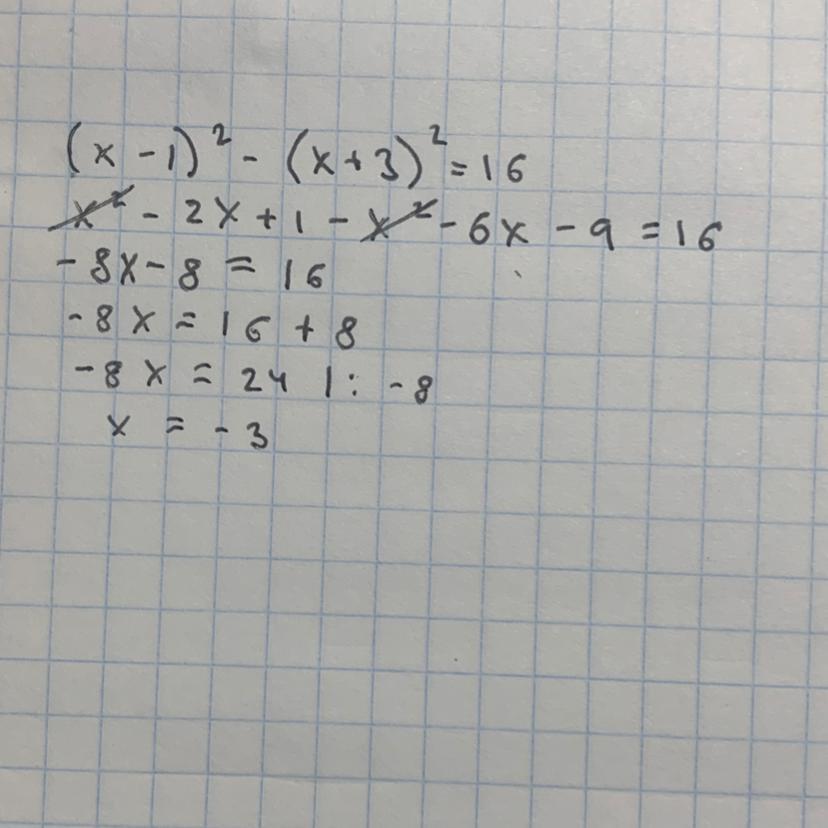 (x - 1)² - (x + 3)² = 16
x² - 2x + 1 - x² - 6x - 9 = 16
-8x - 8 = 16
-8x = 16 + 8
-8x = 24 |: -8
x = -3